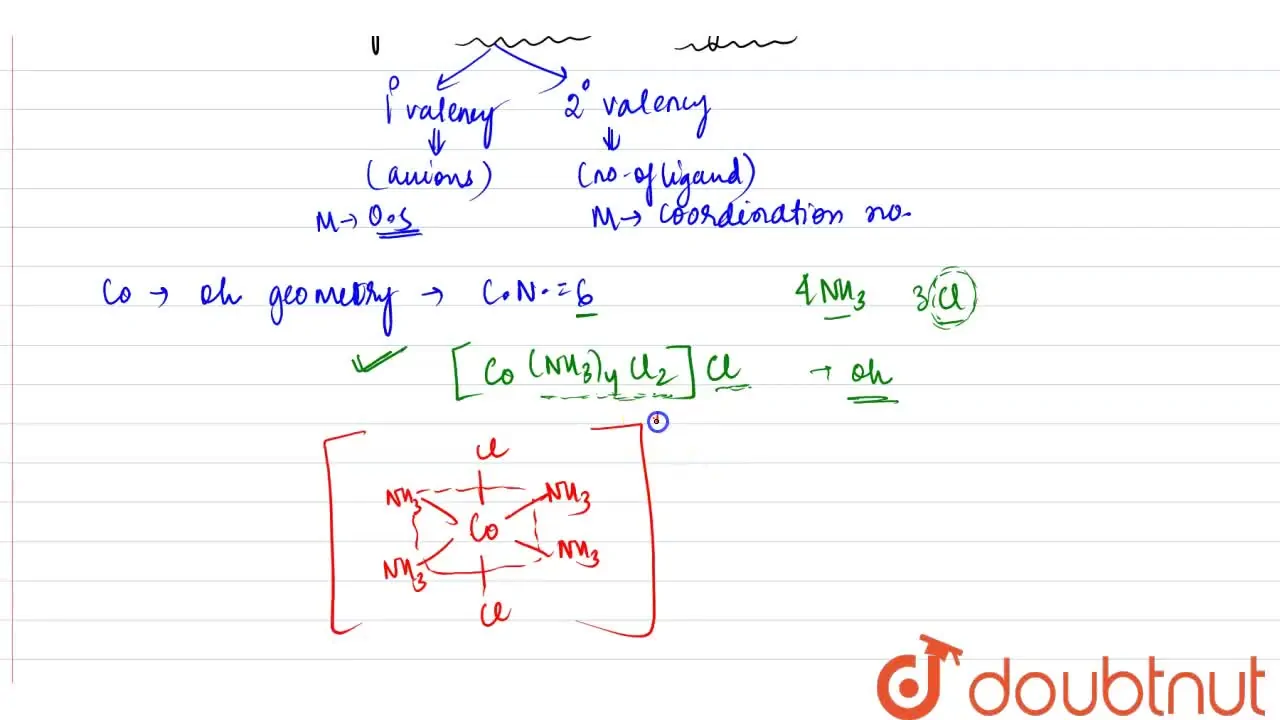 1° valency 2° valency
(anions) (no. of ligand)
M→ O.S M→ coordination no.
Co → oh geometry → C.N. = 6 4 NH3 3 Cl
[Co (NH3)4 Cl2] Cl → oh
Cl
NH3 NH3
Co
NH3 NH3
Cl
doubtnut